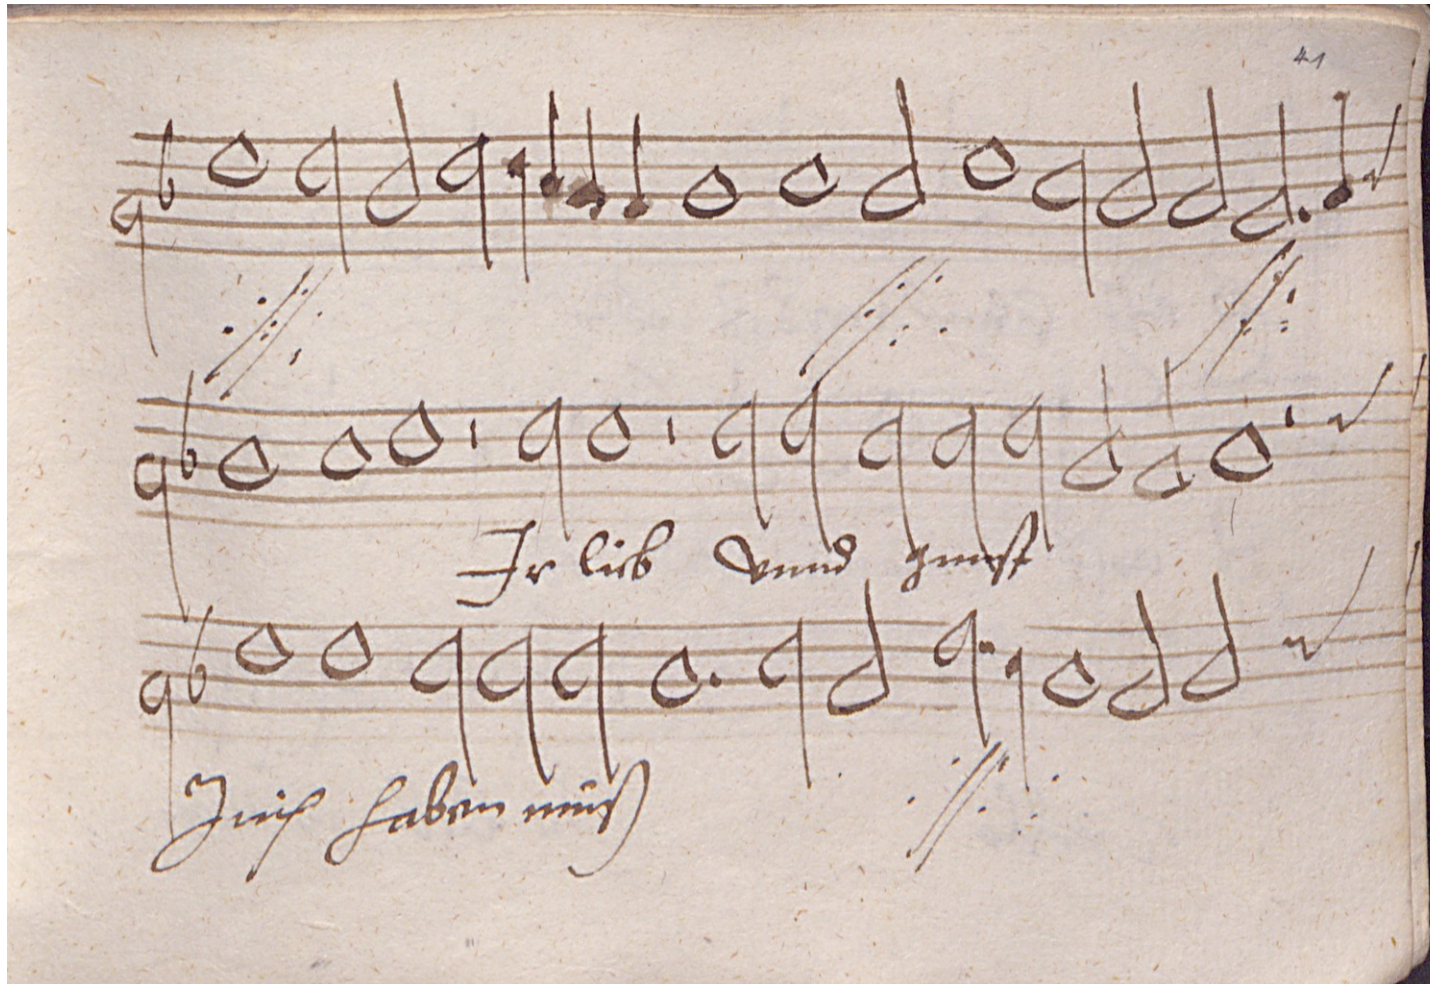 41
Ir lieb Vnnd gunst
I nich haben muß